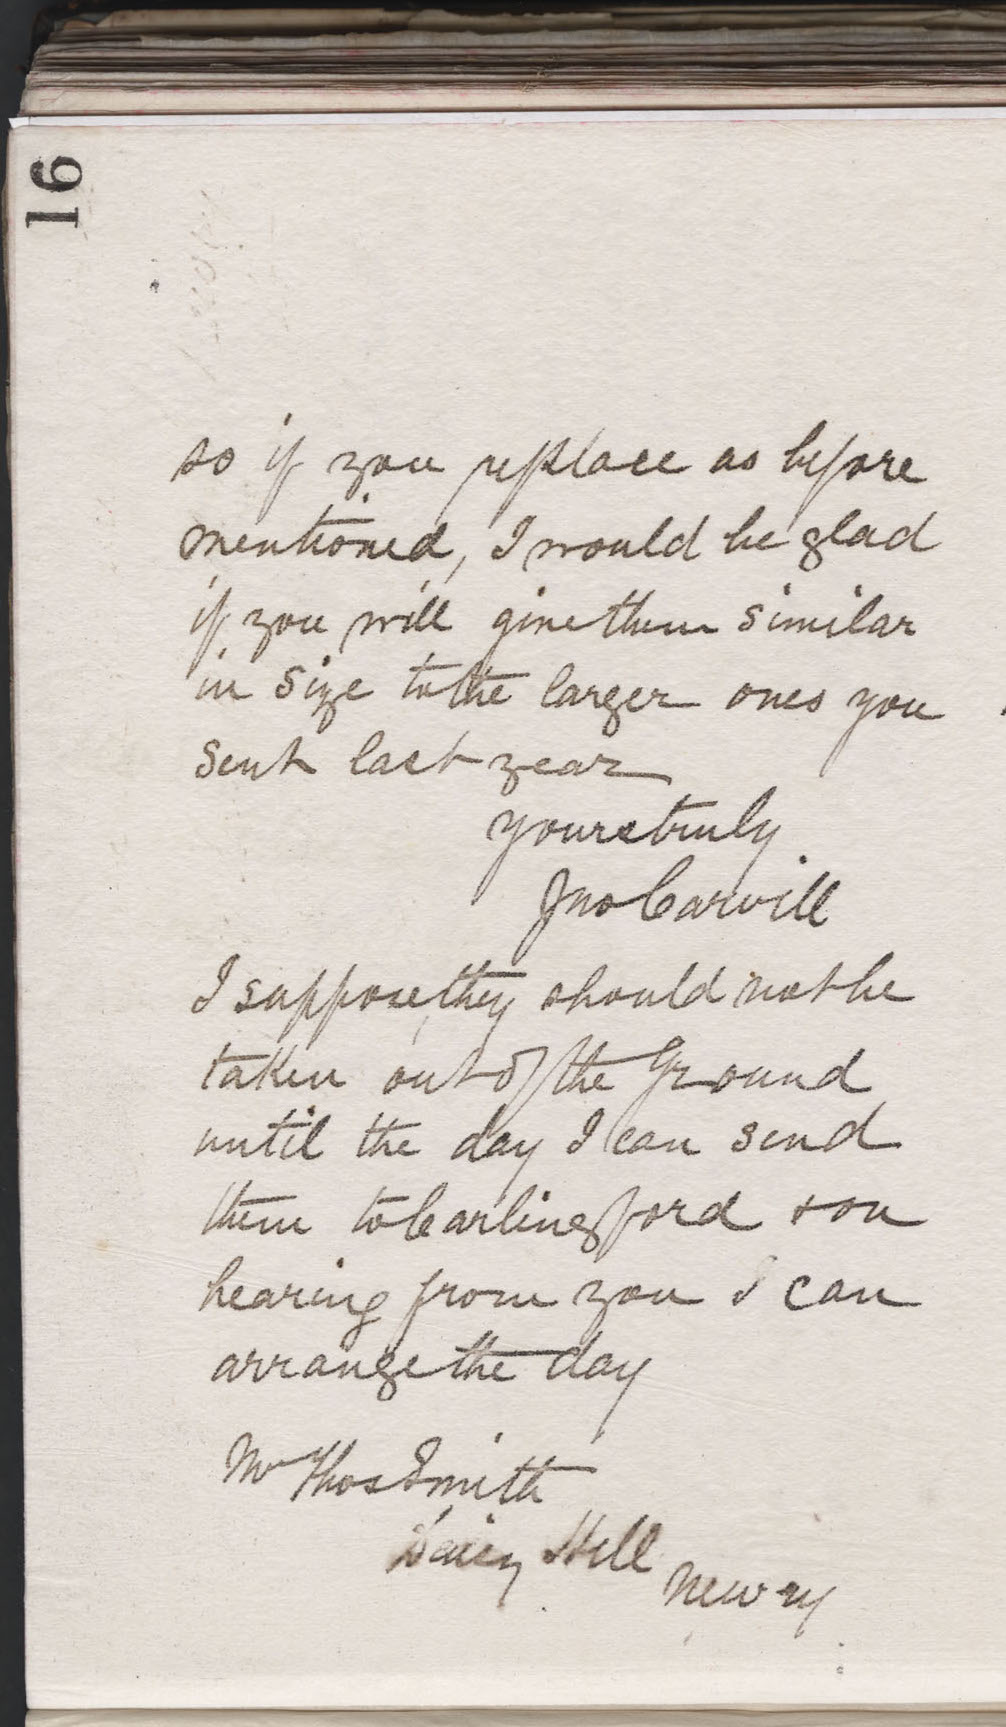 16
so if you replace as before
mentioned, I would be glad
if you will give them similar
in size to the larger ones you
sent last year
yours truly
Jno Carvill
I suppose, they should not be
taken out of the Ground
until the day I can send
them to Carlingford & on
hearing from you I can
arrange the day
Mr Thos Smith
Daisy Hill
Newry